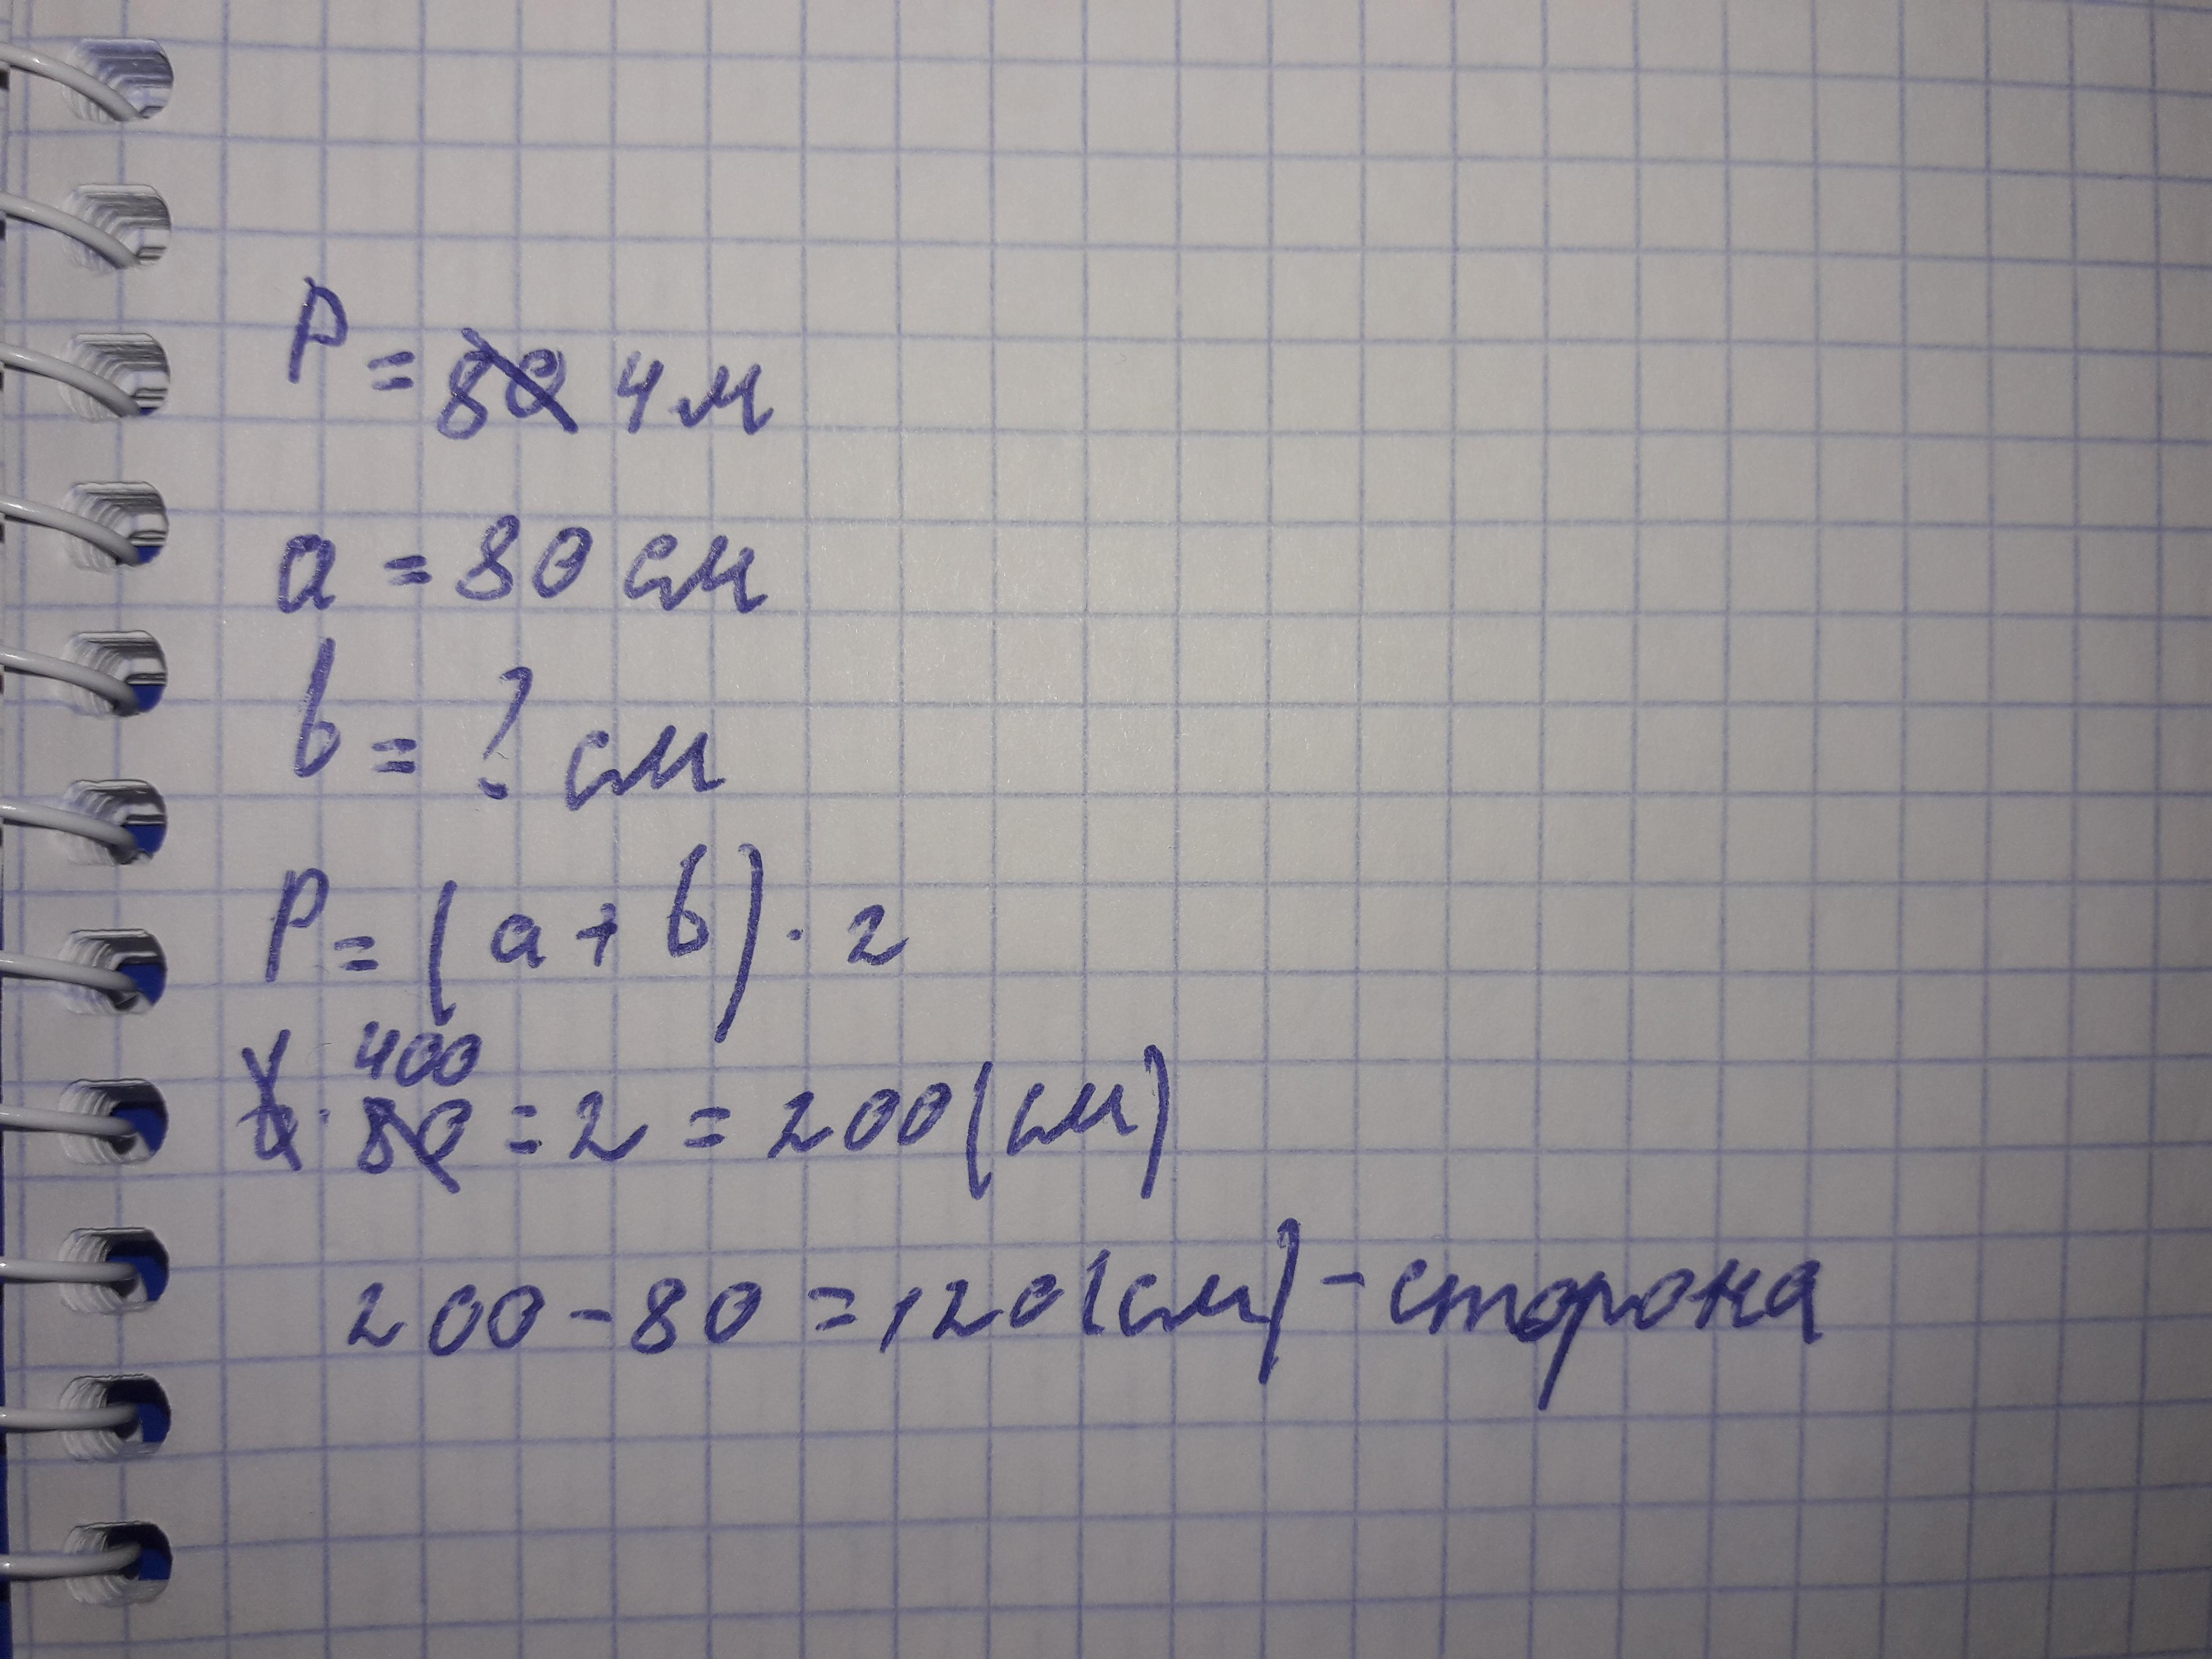 P = 80 4 м
a = 80 см
b = ? см
P = (a + b) · 2
400
80 : 2 = 200 (см)
200 - 80 = 120 (см) - сторона